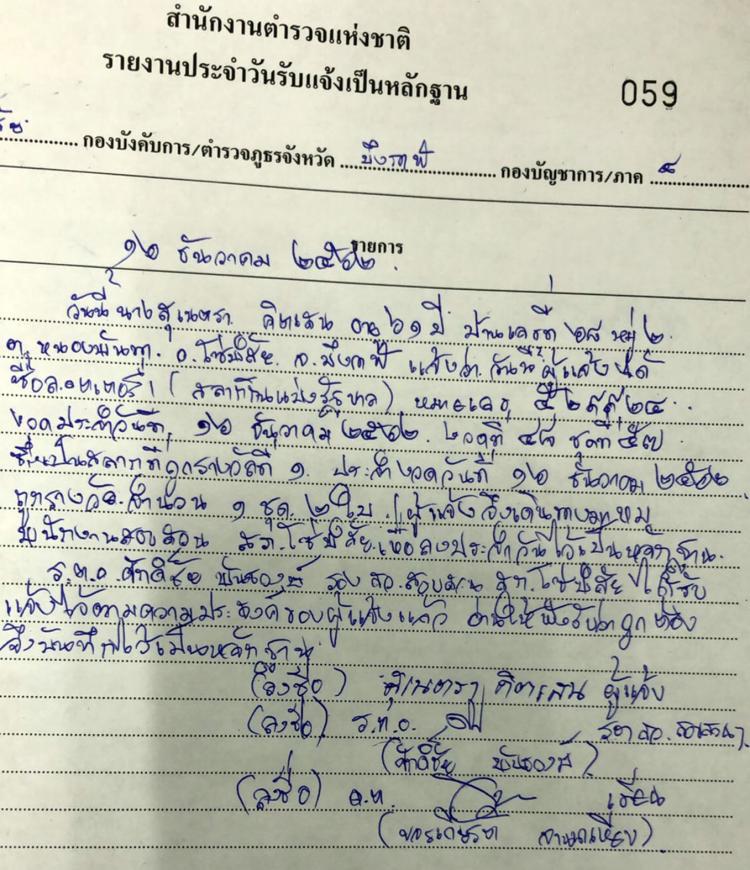 สำนักงานตำรวจแห่งชาติ
รายงานประจำวันรับแจ้งเป็นหลักฐาน
059
กองบังคับการ/ตำรวจภูธรจังหวัด บึงกาฬ กองบัญชาการ/ภาค ๔
รายการ
๑๖ ธันวาคม ๒๕๖๒
วันนี้ นางสุเนตรา อายุ ๖๑ ปี บ้านเลขที่ หมู่ ๒
ต.หนองพันทา อ.โซ่พิสัย จ.บึงกาฬ แจ้งว่า วันนี้ ผู้แจ้งได้
(สลากกินแบ่งรัฐบาล) หมายเลข
งวดประจำวันที่ ๑๖ ธันวาคม ๒๕๖๒ ชุดที่ ๕๗
ซึ่งเป็นสลากที่ถูกรางวัลที่ ๑ ประจำงวดวันที่ ๑๖ ธันวาคม ๒๕๖๒
ถูกรางวัล จำนวน ๑ ชุด ๒ ใบ ผู้แจ้งจึงเดินทางมาพบ
พนักงานสอบสวน สภ.โซ่พิสัย เพื่อลงประจำวันไว้เป็นหลักฐาน
ร.ต.อ. ศักดิ์ชัย รอง สว.สอบสวน สภ.โซ่พิสัย ได้รับ
แจ้งไว้ตามความประสงค์ของผู้แจ้งแล้ว อ่านให้ฟังรับว่าถูกต้อง
จึงบันทึกไว้เป็นหลักฐาน
(ลงชื่อ) สุเนตรา ผู้แจ้ง
(ลงชื่อ) ร.ต.อ.
(ศักดิ์ชัย
(ลงชื่อ) เขียน